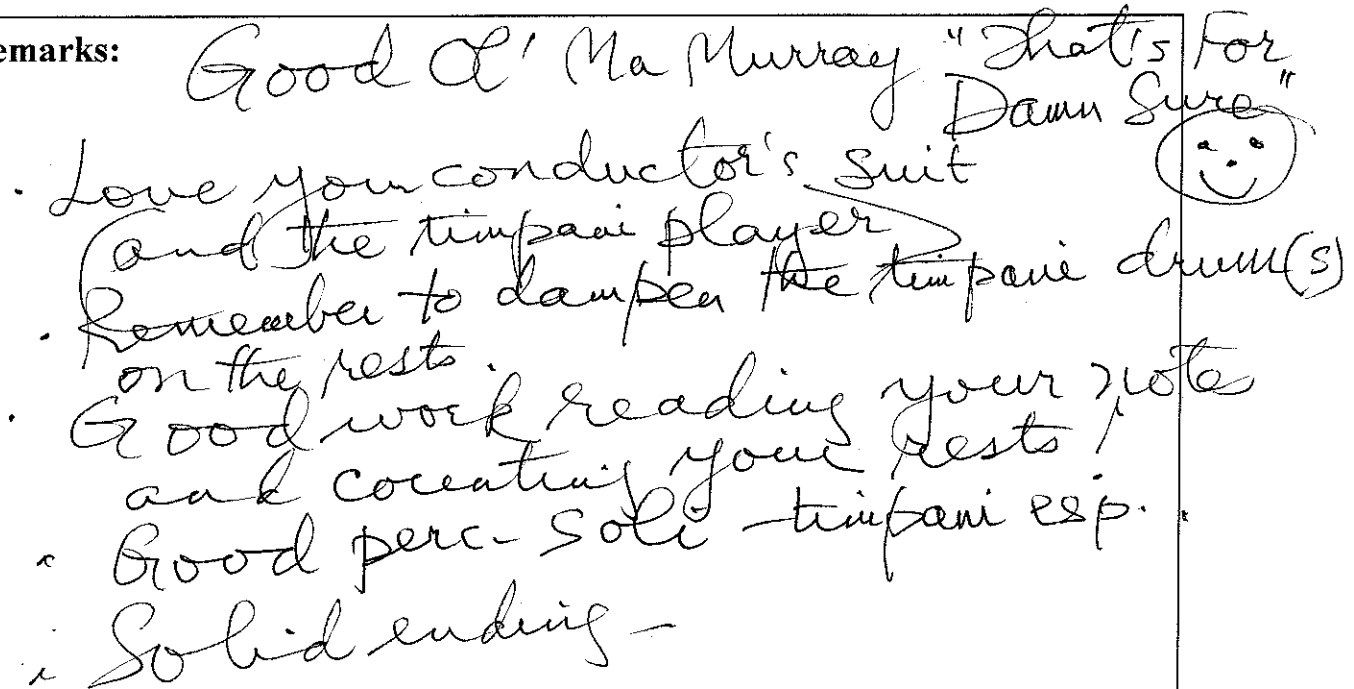 emarks:
Good Ol' Ma Murray "That's For
Damn Sure"
· Love your conductor's suit
and the timpani player
· Remember to dampen the timpani drum(s)
on the rests.
· Good work reading your note
and counting your rests!
· Good perc. soli - timpani esp.
· Solid ending -